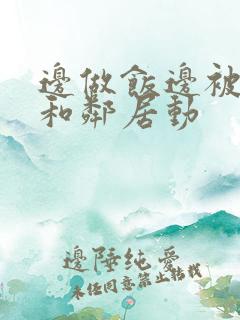 邊做飯邊被
和鄰居動
邊陲純愛
未经同意禁止转载